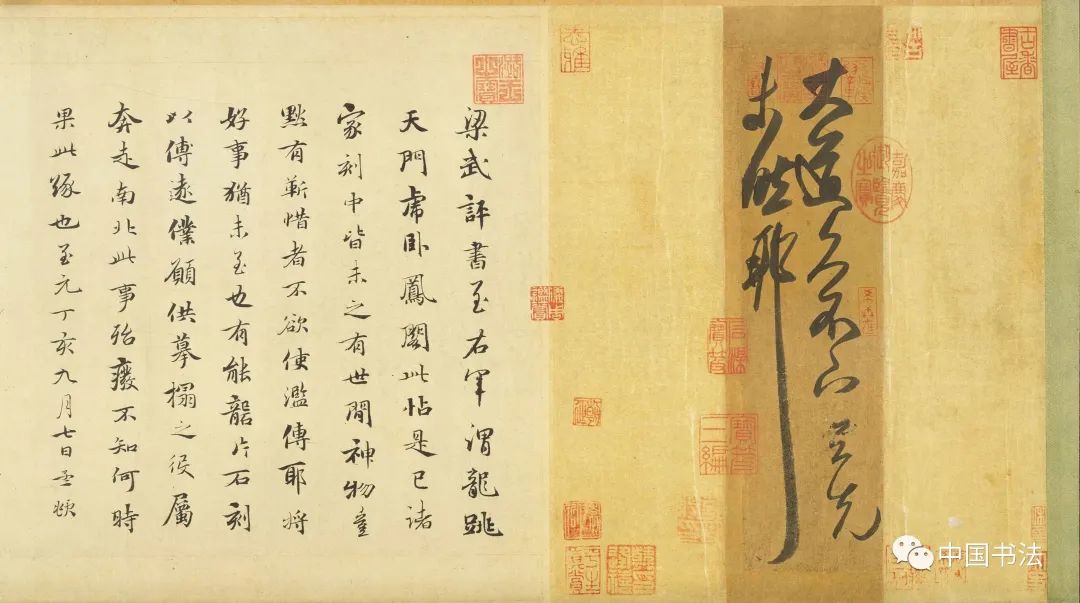 大道久不下与先
未然耶
梁武評書至右軍謂龍跳
天門虎臥鳳閣此帖是已諸
家刻中皆未之有世間神物豈
默有靳惜者不欲使濫傳耶將
好事猶未至也有能礱片石刻
以傳遠僕願供摹搨之役屬
奔走南北此事殆廢不知何時
果此緣也至元丁亥九月七日孟頫
嘉慶御覽之寶
寶笈三編
中国书法